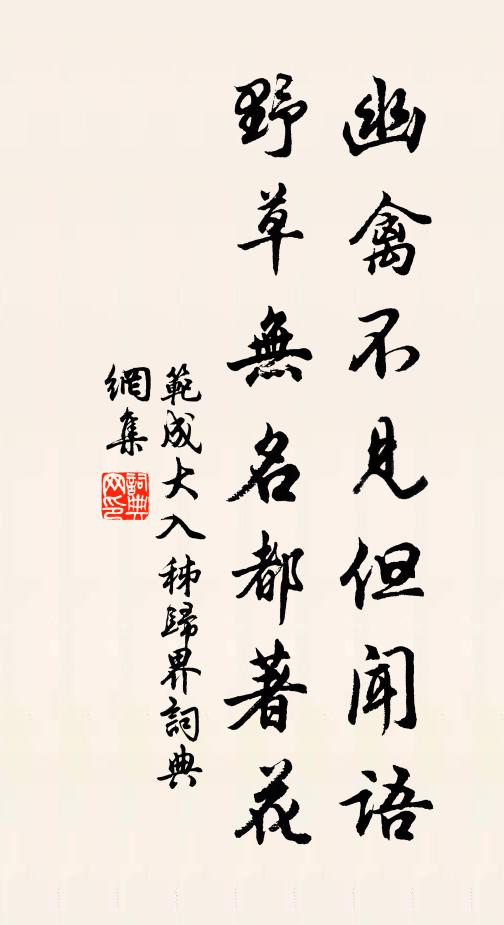 幽禽不見但聞語
野草無名都著花
範成大入秭歸界詞典
網集
詞典
网印